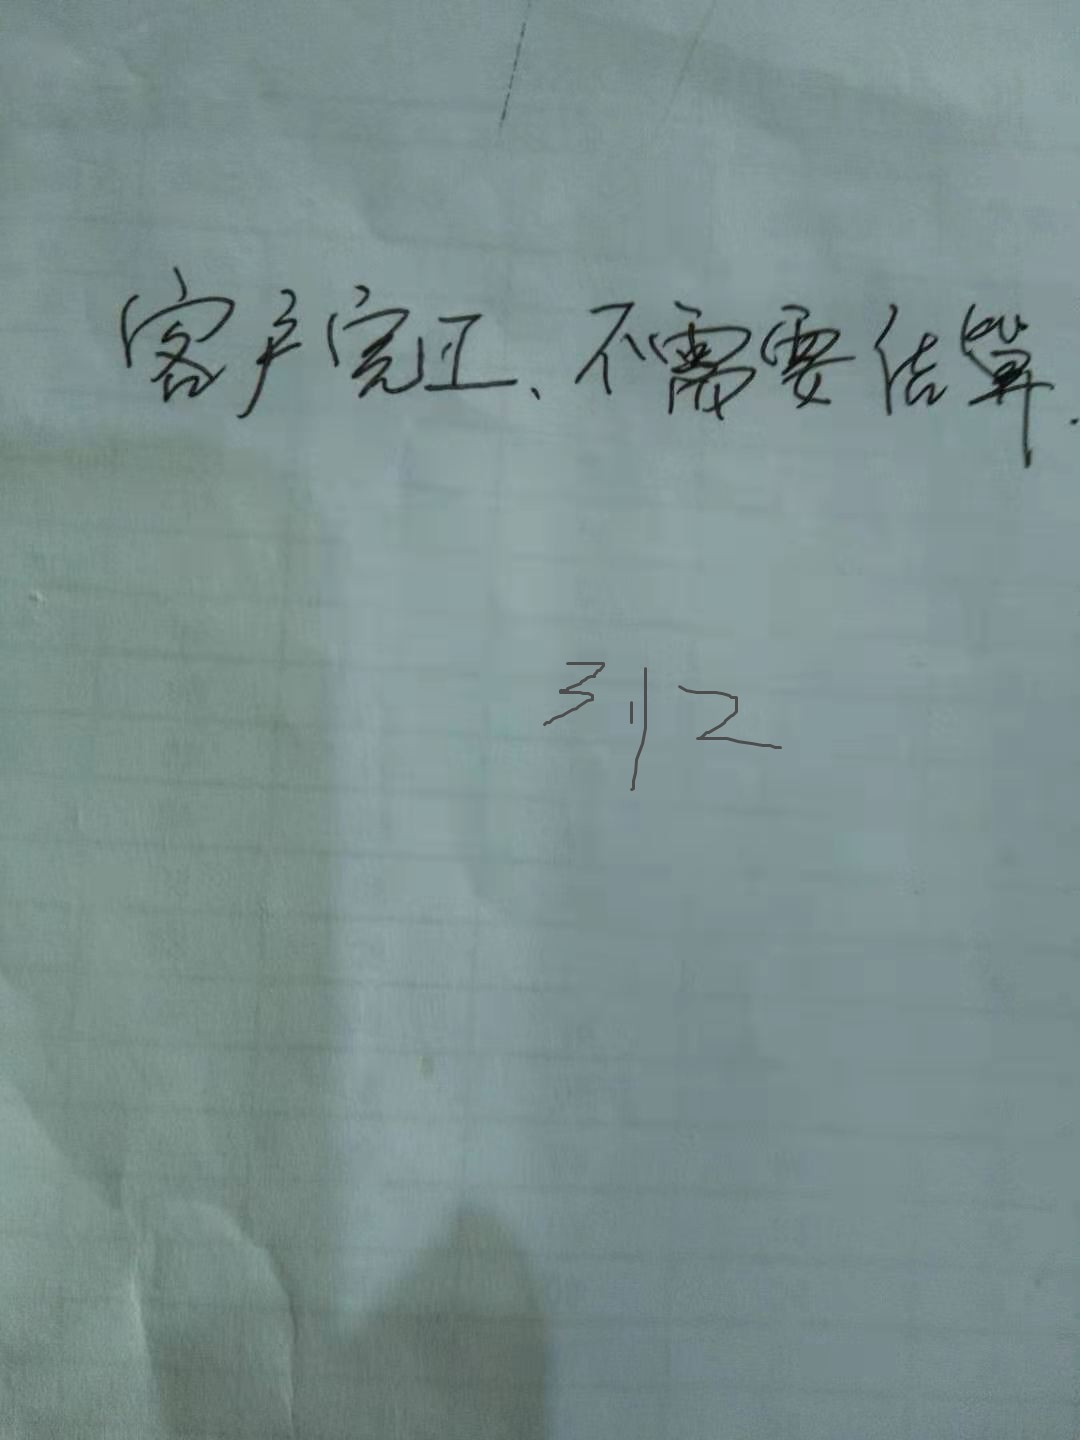 客户完工、不需要结算.
312